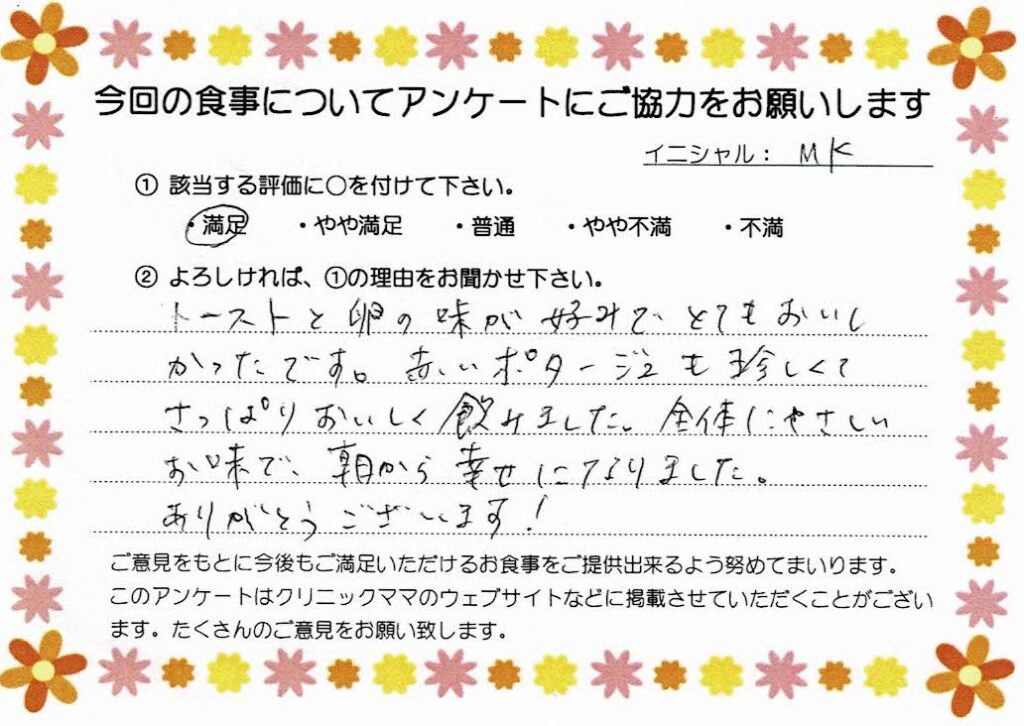 今回の食事についてアンケートにご協力をお願いします
イニシャル： MK
① 該当する評価に○を付けて下さい。
・満足 ・やや満足 ・普通 ・やや不満 ・不満
② よろしければ、①の理由をお聞かせ下さい。
トーストと卵の味が好みでとてもおいし
かったです。赤いポタージュも珍しくて
さっぱりおいしく飲みました。全体にやさしい
お味で、朝から幸せになりました。
ありがとうございます！
ご意見をもとに今後もご満足いただけるお食事をご提供出来るよう努めてまいります。
このアンケートはクリニックママのウェブサイトなどに掲載させていただくことがござい
ます。たくさんのご意見をお願い致します。